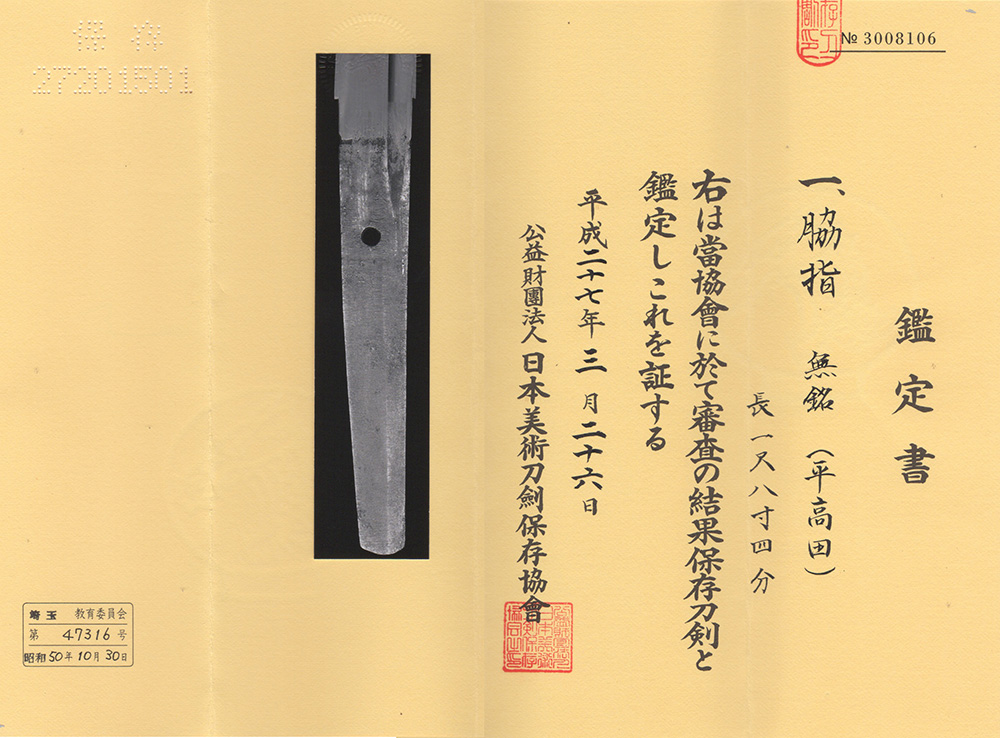 № 3008106
鑑定書
一、脇指 無銘（平高田）
長一尺八寸四分
右は當協會に於て審査の結果保存刀剣と
鑑定しこれを証する
平成二十七年三月二十六日
公益財團法人日本美術刀劍保存協會
保存
27201501
埼玉 教育委員会
第 47316 号
昭和50年10月30日